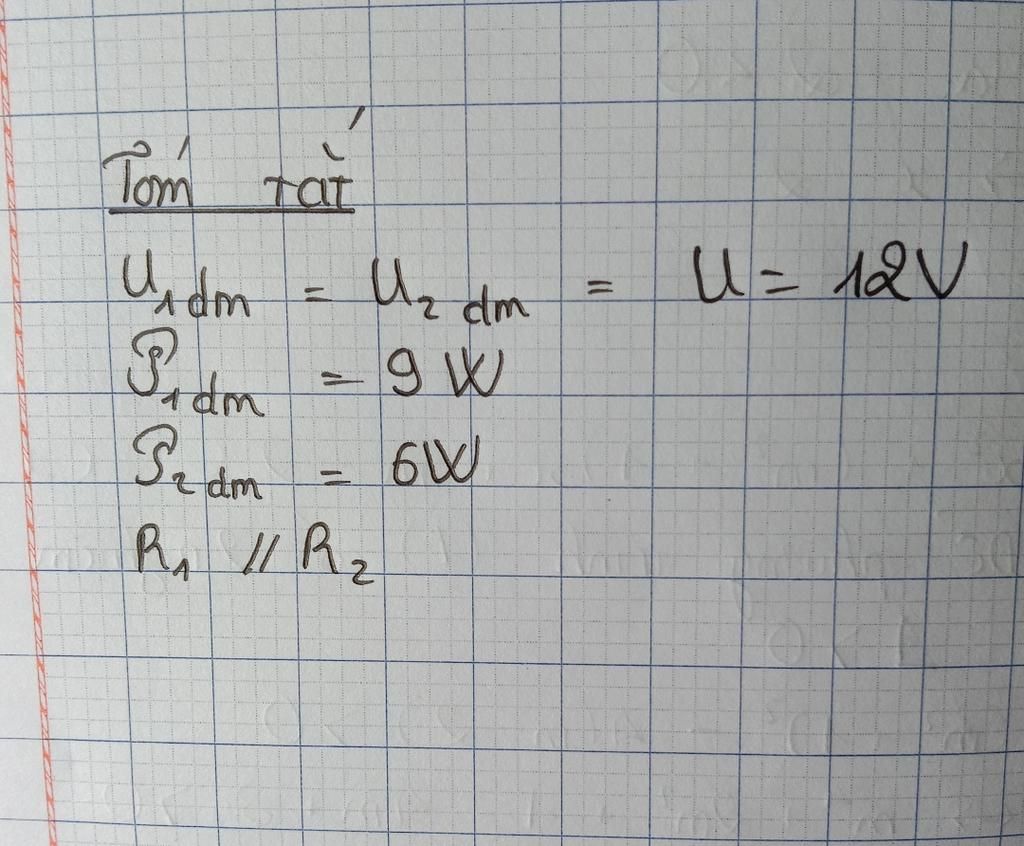 Tóm tắt
U₁dm = U₂dm = U = 12V
P₁dm = 9W
P₂dm = 6W
R₁ // R₂